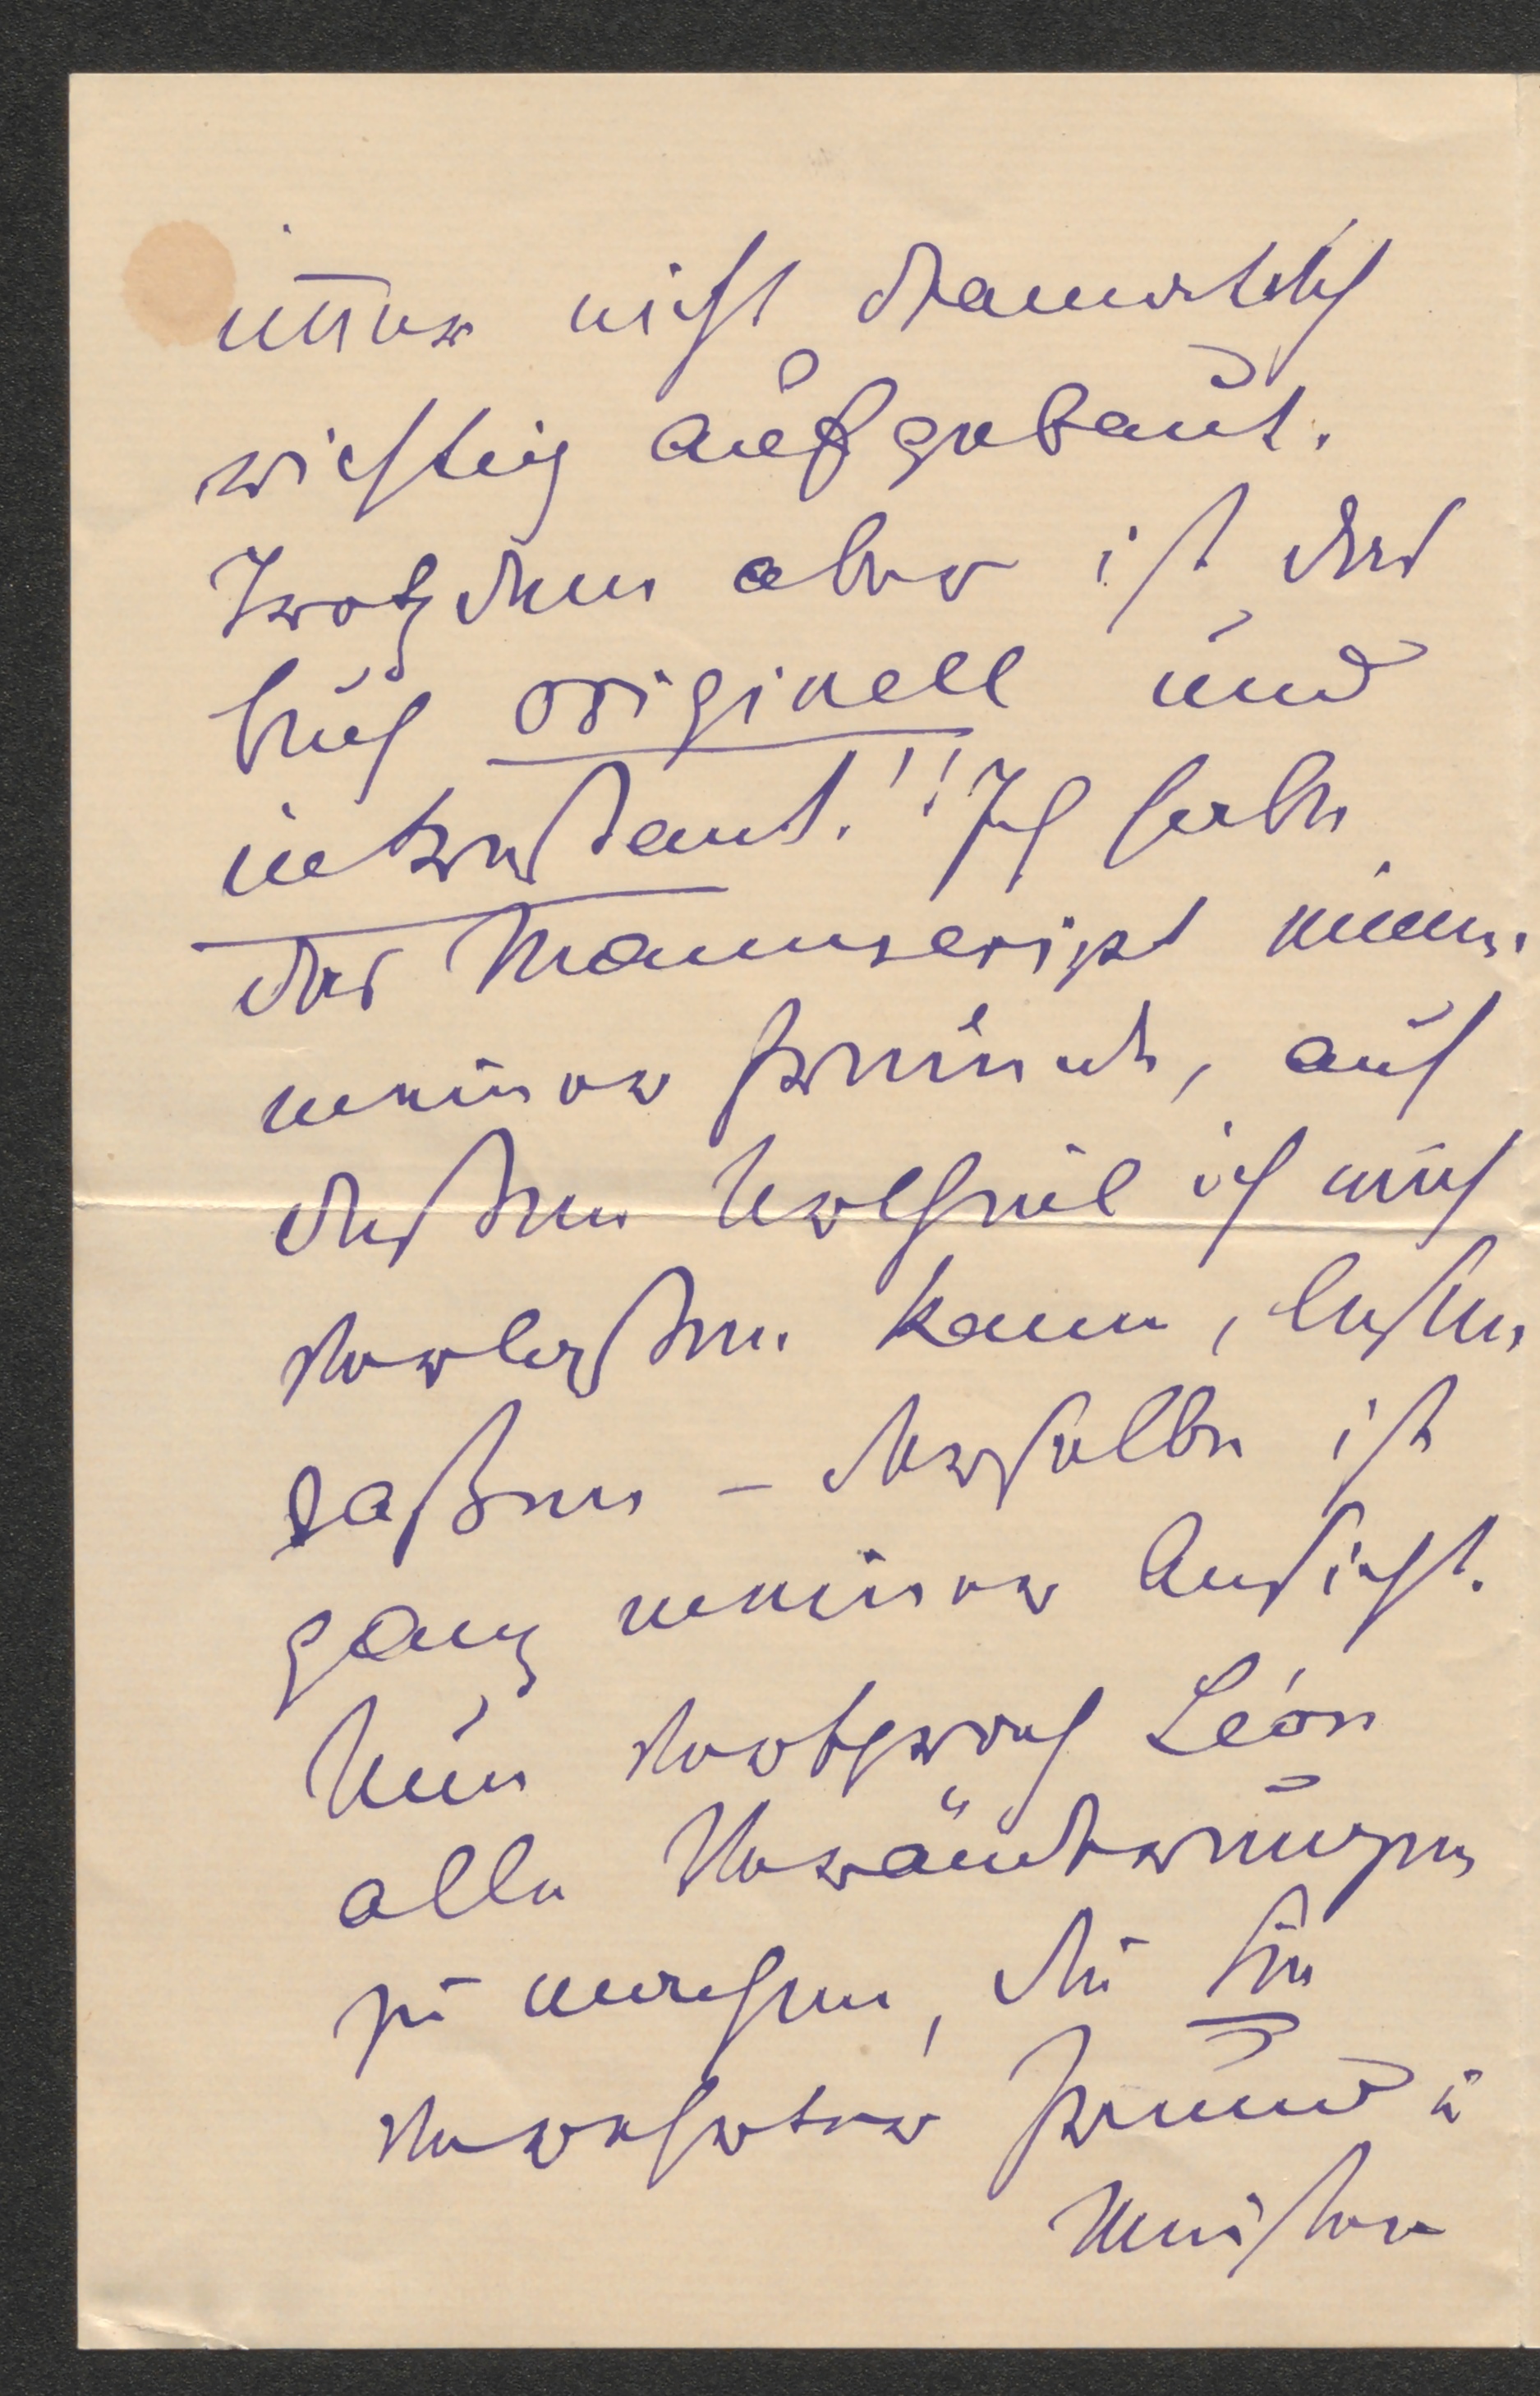 immer nicht dramatisch
richtig aufgebaut.
Trotzdem aber ist das
Buch originell und
interessant.!! Ich habe
das Manuscript einem
meiner Freunde, auf
dessen Urtheil ich mich
verlassen kann, lesen
lassen – derselbe ist
ganz meiner Ansicht.
Nun versprach Léon
alle Veränderungen
zu machen, die Sie
verehrter Freund u
Meister